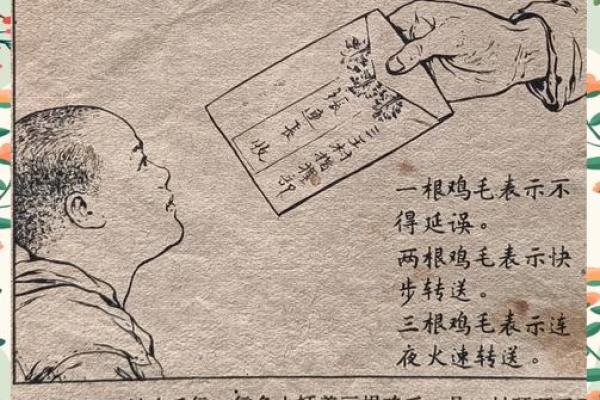 三王村指挥部
张连长 收
一根鸡毛表示不
得延误。
两根鸡毛表示快
步转送。
三根鸡毛表示连
夜火速转送。